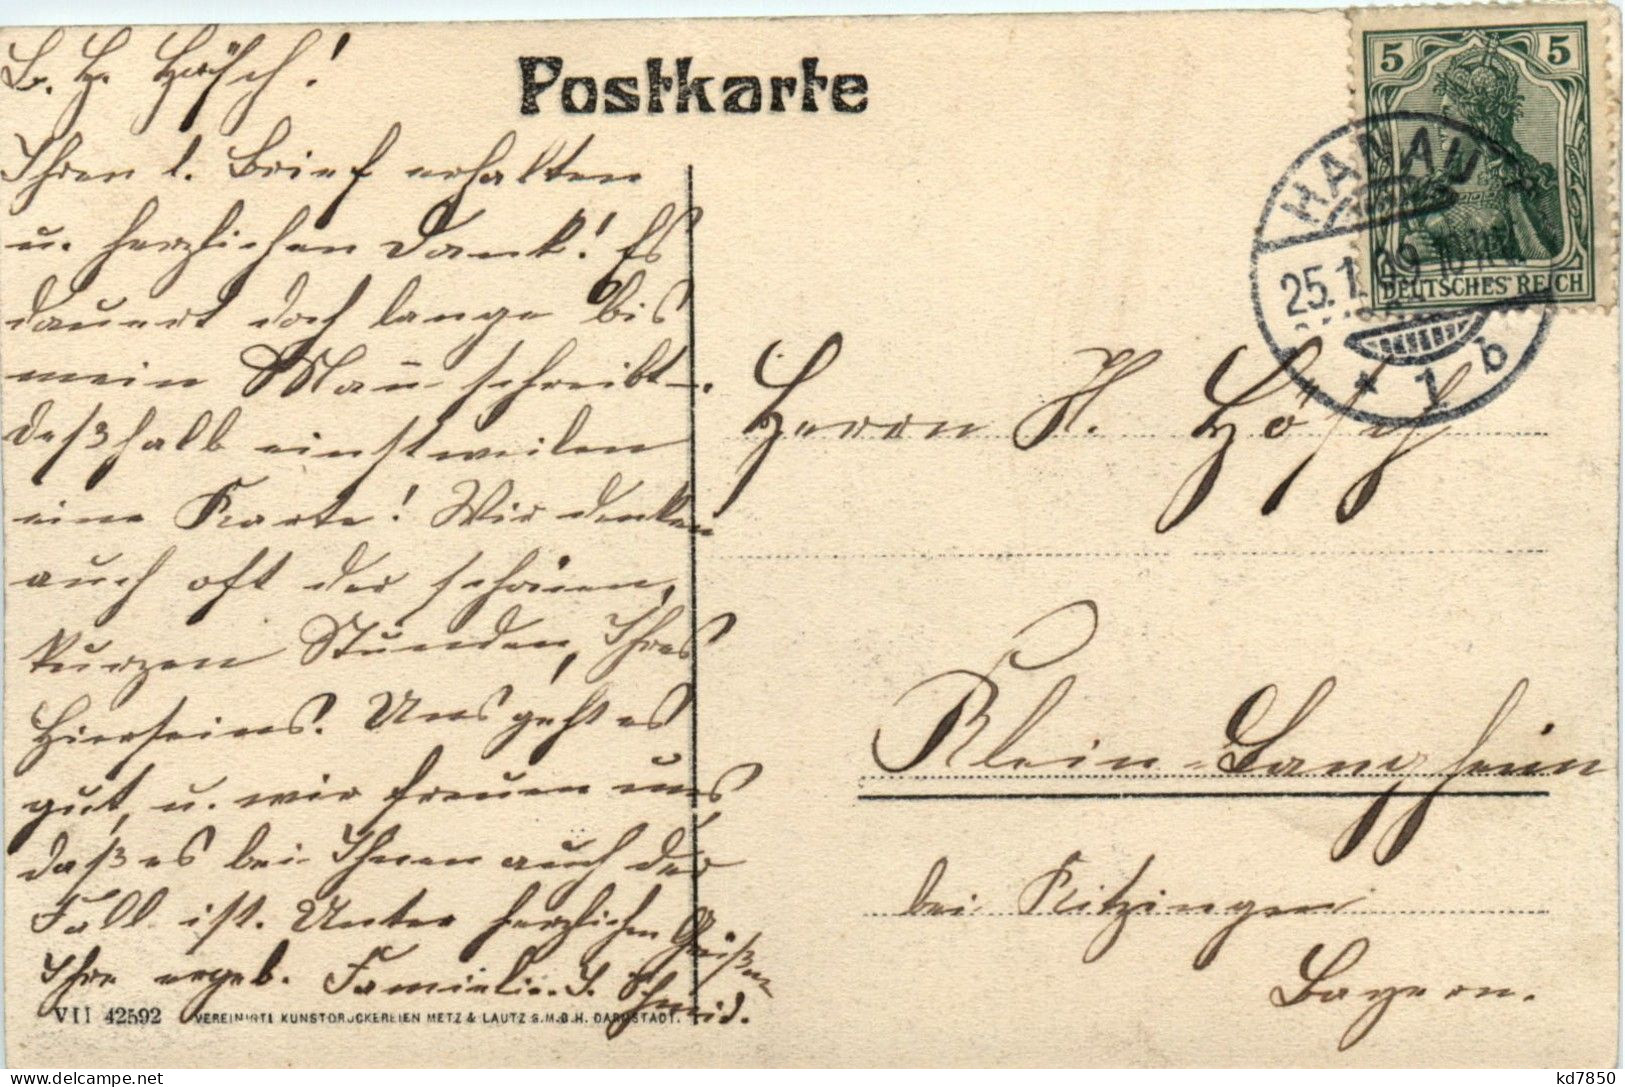 L. H. Hösch!
Postkarte
Ihren l. Brief erhalten
u. herzlichen Dank! Es
dauert doch lange bis
mein Mann schreibt
deßhalb einstweilen
eine Karte! Wir denken
auch oft der schönen,
kurzen Stunden, Ihres
Hierseins. Uns geht es
gut, u. wir freuen uns,
daß es bei Ihnen auch der
Fall ist. Unter herzlichen Grüßen
Ihre ergeb. Familie J. Schmid.
VII 42592 VEREINIGTE KUNSTDRUCKEREIEN METZ & LAUTZ G.M.B.H. DARMSTADT.
5 5
DEUTSCHES REICH
HANAU
25.1.09 10-11
* 1 b
Herrn H. Hösch
Klein-Langheim
bei Kitzingen
Bayern.
kd7850